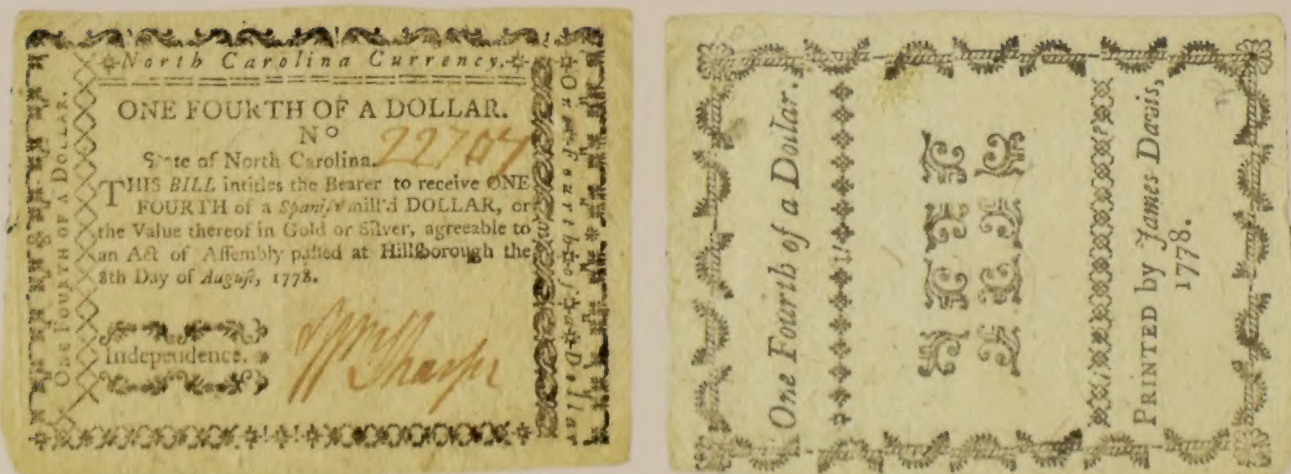 North Carolina Currency.
ONE FOURTH OF A DOLLAR.
No 22707
State of North Carolina.
THIS BILL intitles the Bearer to receive ONE
FOURTH of a Spaniſh mill'd DOLLAR, or
the Value thereof in Gold or Silver, agreeable to
an Act of Aſſembly paſſed at Hillſborough the
8th Day of Auguſt, 1778.
Independence.
Wm Sharpe
ONE FOURTH OF A DOLLAR.
One-Fourth-of-a-Dollar
One Fourth of a Dollar.
PRINTED by James Davis,
1778.